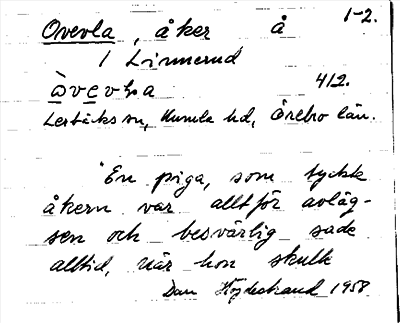 Ovevla, åker å 1-2.
i Linnerud
åvevla 412.
Lerbäcks sn, Kumla hd, Örebro län.
"En piga, som tyckte
åkern var alltför avläg-
sen och besvärlig sade
alltid, när hon skulle
Dan Högbestrand 1958